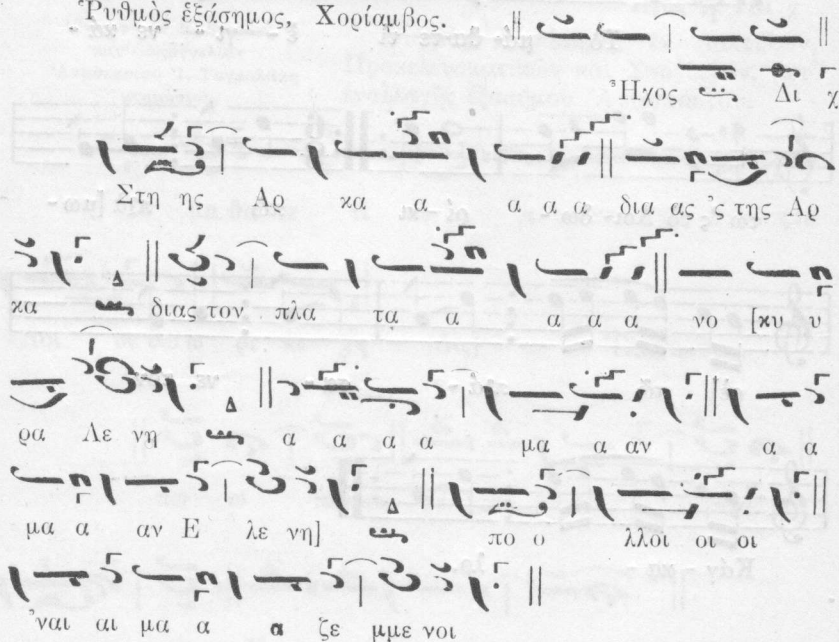 Ῥυθμὸς ἑξάσημος, Χορίαμβος.
Ἦχος Δι χ
Στη ης Αρ κα α α α α δια ας ’ς της Αρ
κα διας τον πλα τα α α α α νο [κυ υ
ρα Λε νη α α α α μα α αν α α
μα α αν Ε λε νη] πο ο λλοί οι οι
’ναι αι μα α α ζε μμε νοι